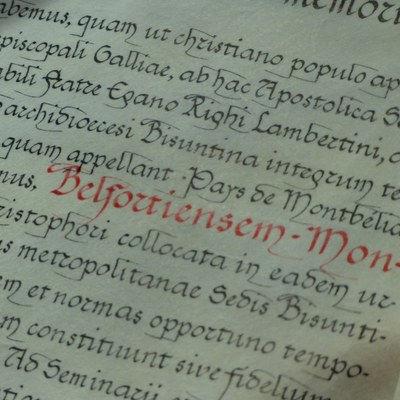 memori
abemus, quam ut christiano populo ap
episcopali Galliae, ab hac Apostolica S
abili Fratre Egano Righi Lambertini,
archidioecesi Bisuntina integrum te
quam appellant "Pays de Montbélia
mus, Belfortiensem-Mon-
ristophori collocata in eadem ur-
us metropolitanae Sedis Bisunti-
em et normas opportuno tempo-
m constituunt sive fidelium
Ad Seminarii